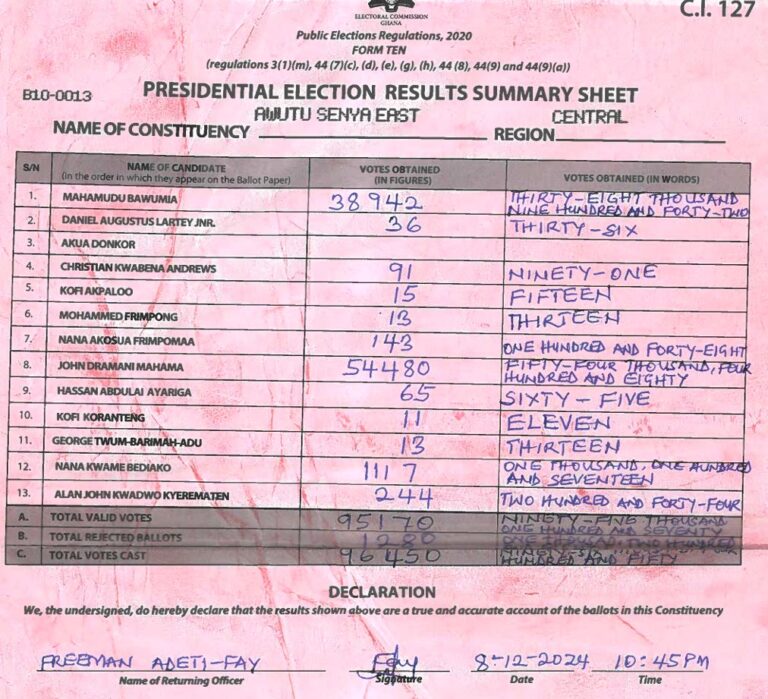 C.I. 127
ELECTORAL COMMISSION
GHANA
Public Elections Regulations, 2020
FORM TEN
(regulations 3(1)(m), 44 (7)(c), (d), (e), (g), (h), 44 (8), 44(9) and 44(9)(a))
B10-0013
PRESIDENTIAL ELECTION RESULTS SUMMARY SHEET
NAME OF CONSTITUENCY AWUTU SENYA EAST REGION CENTRAL
S/N NAME OF CANDIDATE (in the order in which they appear on the Ballot Paper) VOTES OBTAINED (IN FIGURES) VOTES OBTAINED (IN WORDS)
1. MAHAMUDU BAWUMIA 38942 THIRTY-EIGHT THOUSAND NINE HUNDRED AND FORTY-TWO
2. DANIEL AUGUSTUS LARTEY JNR. 36 THIRTY-SIX
3. AKUA DONKOR
4. CHRISTIAN KWABENA ANDREWS 91 NINETY-ONE
5. KOFI AKPALOO 15 FIFTEEN
6. MOHAMMED FRIMPONG 13 THIRTEEN
7. NANA AKOSUA FRIMPOMAA 143 ONE HUNDRED AND FORTY-EIGHT
8. JOHN DRAMANI MAHAMA 54480 FIFTY-FOUR THOUSAND, FOUR HUNDRED AND EIGHTY
9. HASSAN ABDULAI AYARIGA 65 SIXTY-FIVE
10. KOFI KORANTENG 11 ELEVEN
11. GEORGE TWUM-BARIMAH-ADU 13 THIRTEEN
12. NANA KWAME BEDIAKO 1117 ONE THOUSAND, ONE HUNDRED AND SEVENTEEN
13. ALAN JOHN KWADWO KYEREMATEN 244 TWO HUNDRED AND FORTY-FOUR
A. TOTAL VALID VOTES 95170 NINETY-FIVE THOUSAND ONE HUNDRED AND SEVENTY
B. TOTAL REJECTED BALLOTS 1280 ONE THOUSAND TWO HUNDRED
C. TOTAL VOTES CAST 96450 NINETY-SIX HUNDRED AND FIFTY
DECLARATION
We, the undersigned, do hereby declare that the results shown above are a true and accurate account of the ballots in this Constituency
FREEMAN ADETI-FAY 8-12-2024 10:45PM
Name of Returning Officer Signature Date Time